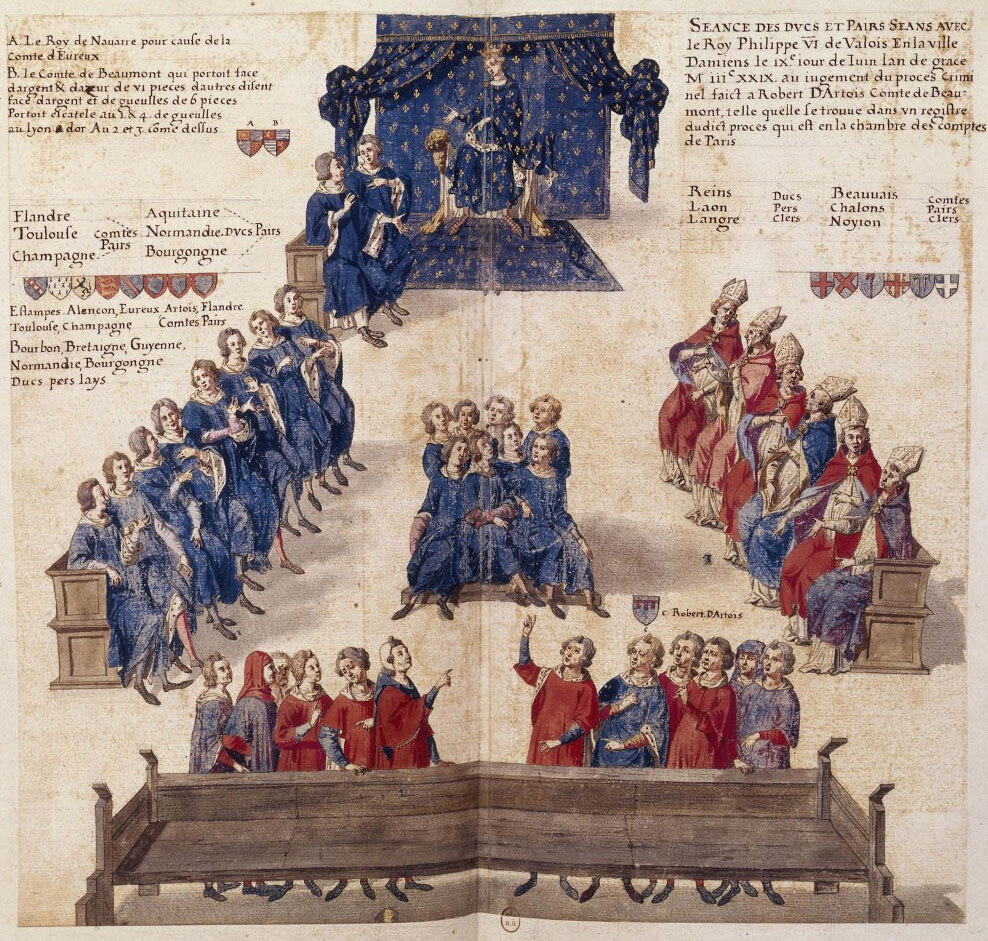 A. Le Roy de Nauarre pour cause de la
Comte d'Eureux
B. le Comte de Beaumont qui portoit face
dargent & dazur de vi pieces dautres disent
face dargent et de gueulles de 6 pieces
Portoit escatele au 1. & 4. de gueulles
au lyon dor Au 2 et 3 cõme dessus
A B
SEANCE DES DVCS ET PAIRS SEANS AVEC
le Roy Philippe VI de Valois En la ville
Damiens le ixe iour de Iuin lan de grace
M iiic XXIX. au iugement du proces Crimi
nel faict a Robert D'Artois Comte de Beau-
mont, telle quelle se trouue dans vn registre
dudict proces qui est en la chambre des comptes
de Paris
Flandre
Toulouse
Champagne
comtes
Pairs
Aquitaine
Normandie
Bourgongne
DVCS Pairs
Reins
Laon
Langre
Ducs
Pers
clers
Beauuais
Chalons
Noyion
Comtes
Pairs
clers
Estampes. Alencon, Eureux Artois, Flandre
Toulouse, Champagne Comtes Pairs
Bourbon, Bretaigne, Guyenne,
Normandie, Bourgongne
Ducs pers lays
c Robert. D'Artois